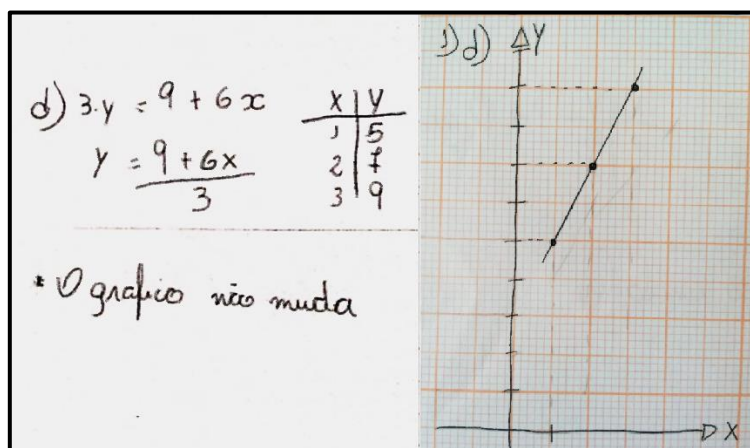 d) 3.y = 9 + 6x
y = 9 + 6x
3
x | y
1 | 5
2 | 7
3 | 9
* O grafico não muda
1) d)
Y
X